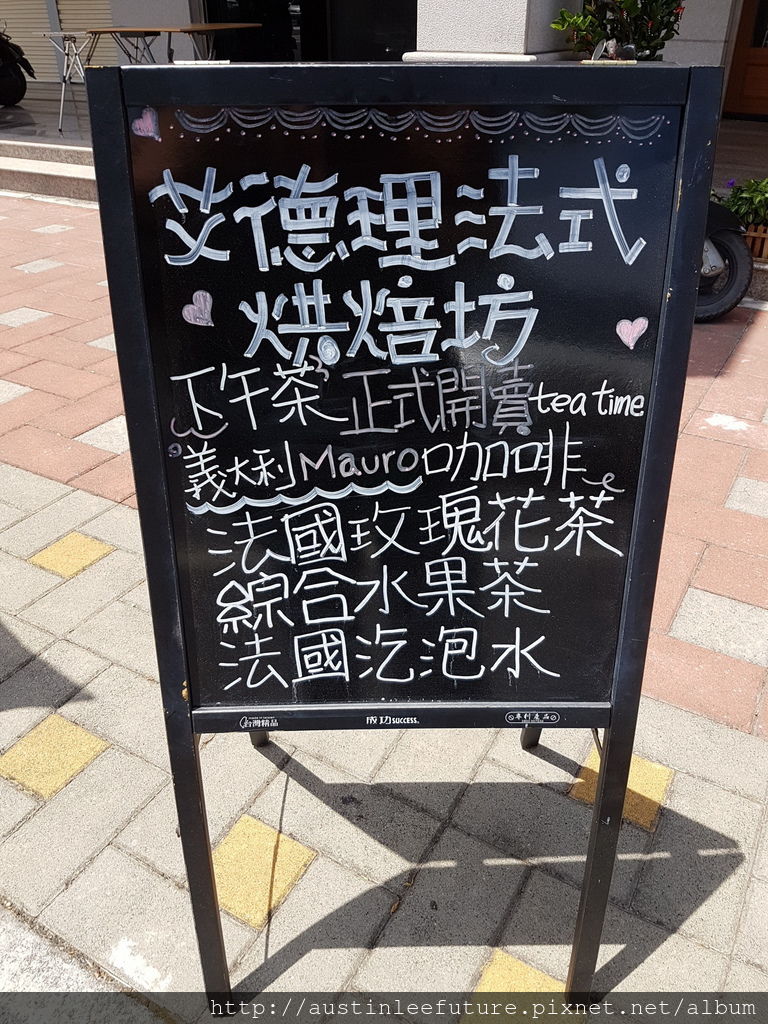 艾德理法式
烘焙坊
下午茶 正式開賣 tea time
義大利Mauro咖啡
法國玫瑰花茶
綜合水果茶
法國汽泡水
台灣精品 成功SUCCESS. 專利產品
http://austinleefuture.pixnet.net/album